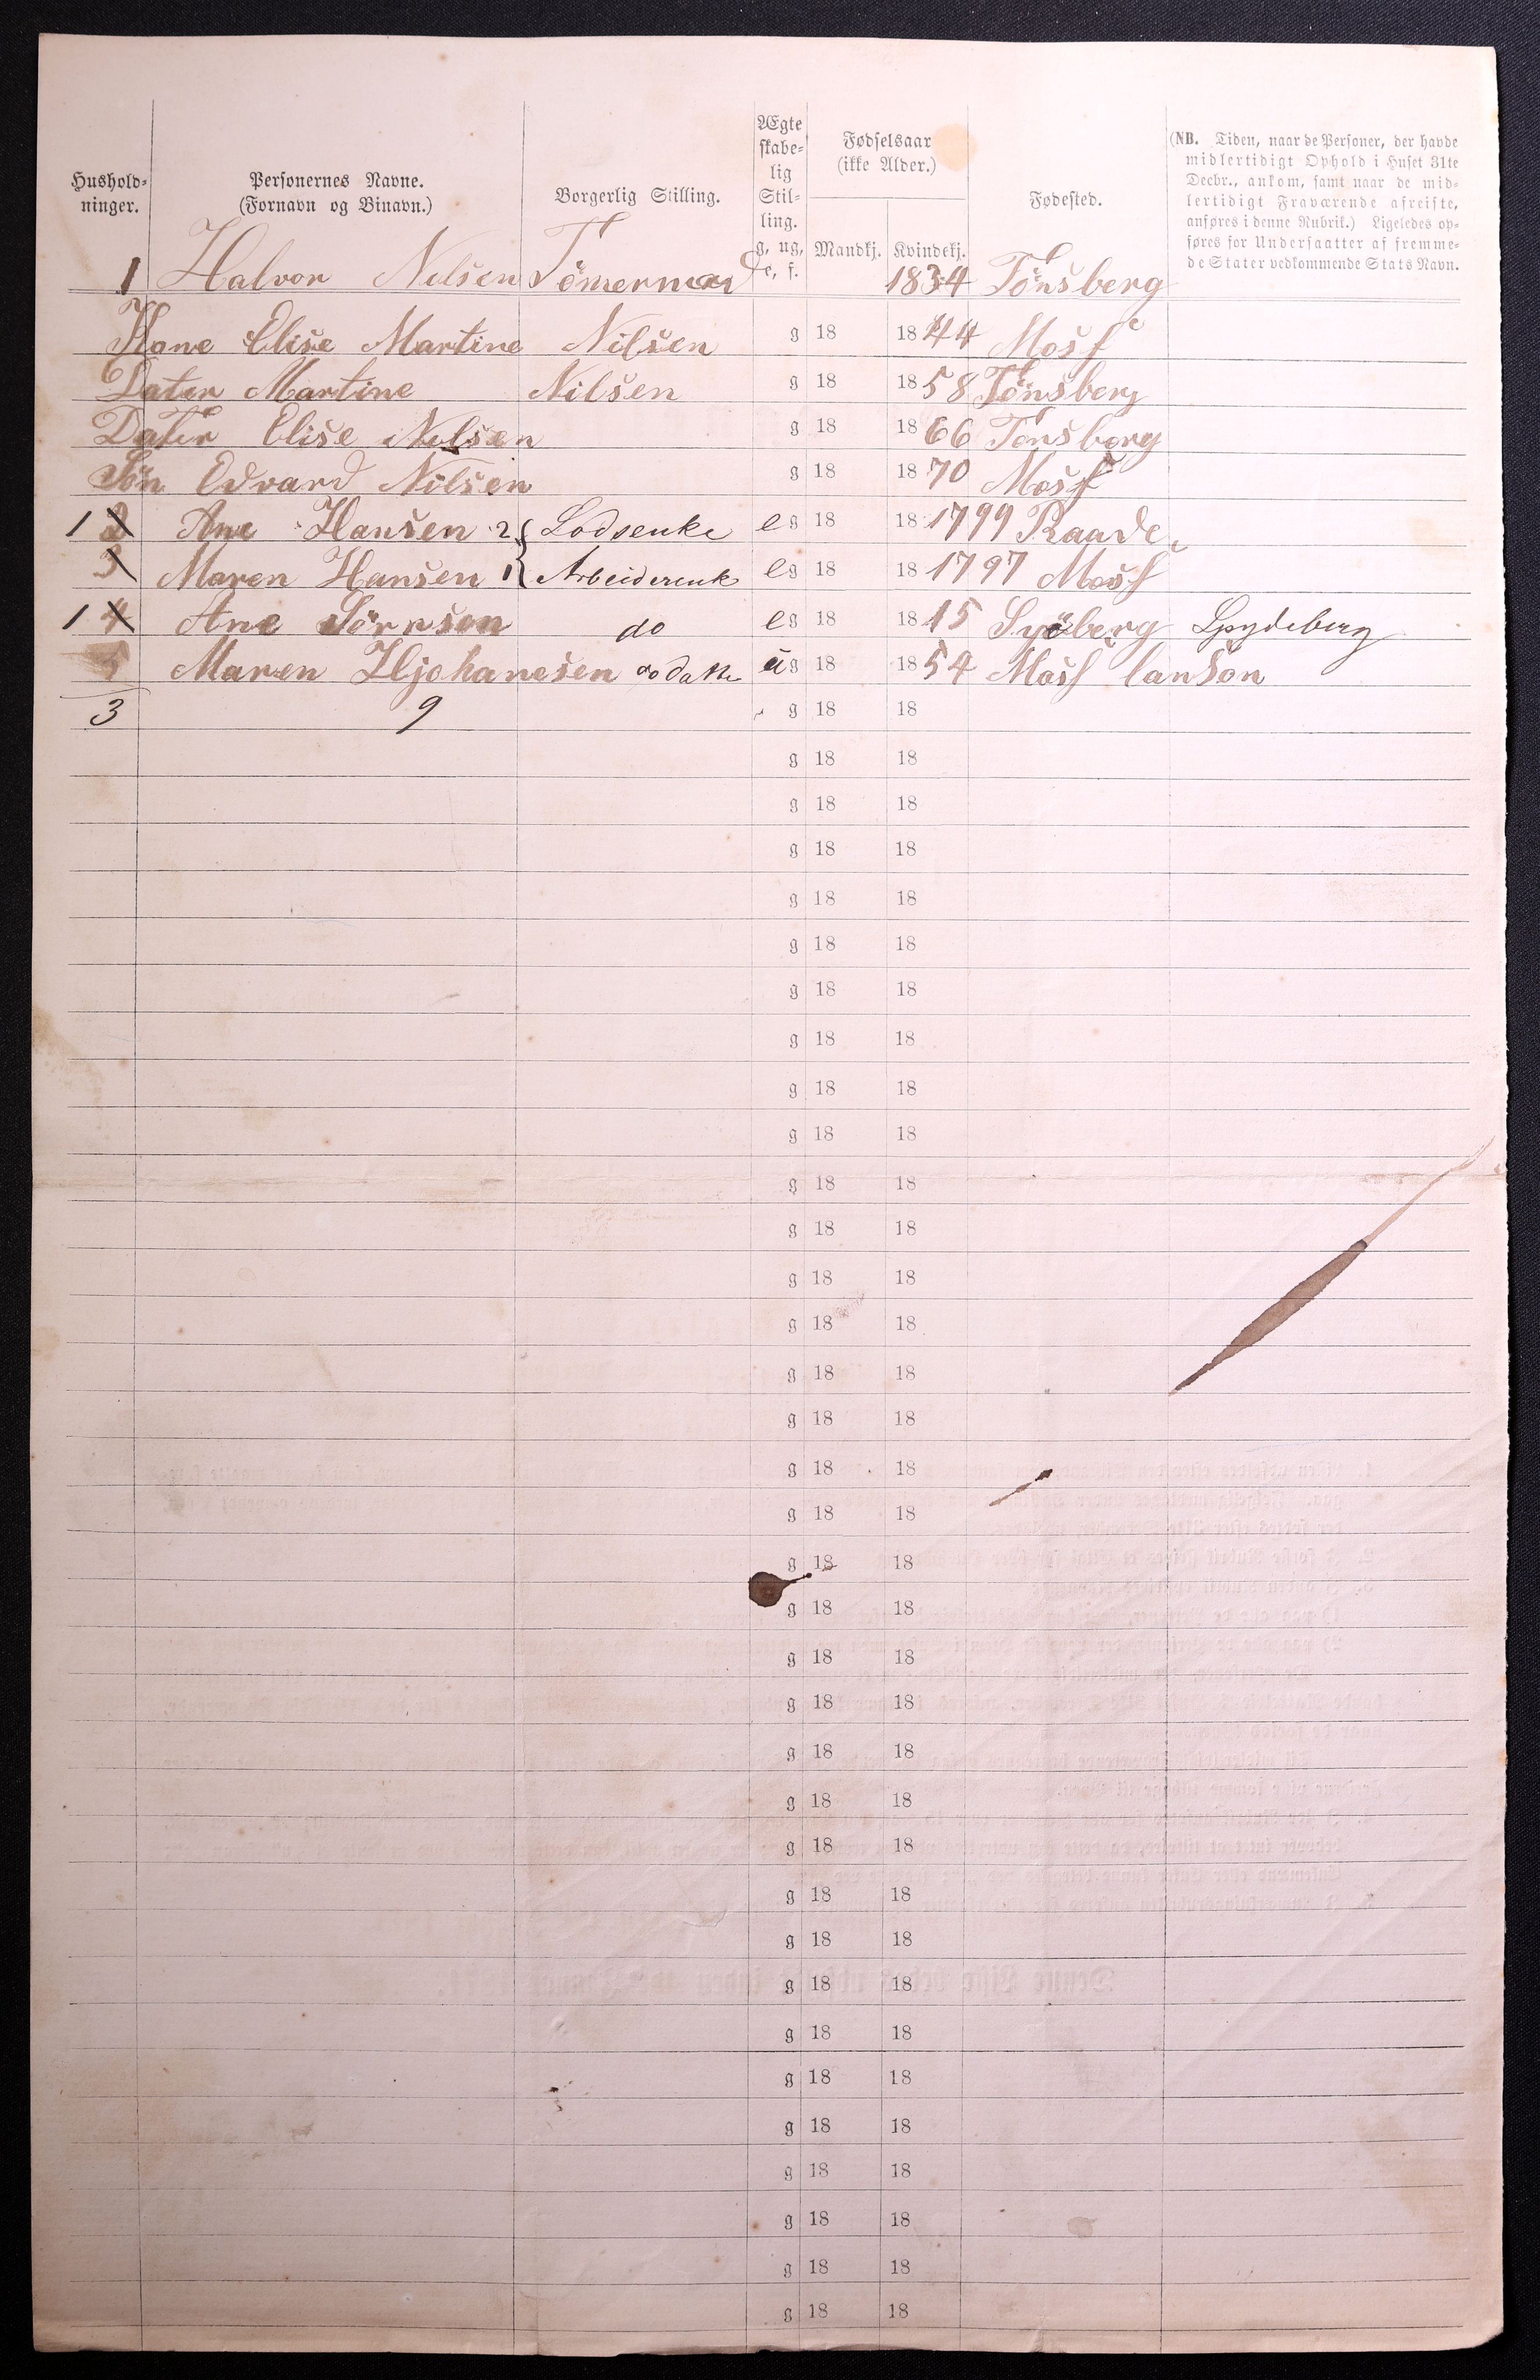 Hushold-
ninger.
Personernes Navne.
(Fornavn og Binavn.)
Borgerlig Stilling.
Ægte
skabe-
lig
Stil-
ling.
g, ug,
e, f.
Fødselsaar
(ikke Alder.)
Mandkj. Kvindekj.
Fødested.
(NB. Tiden, naar de Personer, der havde
midlertidigt Ophold i Huset 31te
Decbr., ankom, samt naar de mid-
lertidigt Fraværende afreiste,
anføres i denne Rubrik.) Ligeledes op-
føres for Undersaatter af fremme-
de Stater vedkommende Stats Navn.
1 Halvor Nilsen Tömermand 1834 Tönsberg
Kone Elise Martine Nilsen g 18 1844 Moss
Dater Martine Nilsen g 18 1858 Tönsberg
Dater Elise Nilsen g 18 1866 Tönsberg
Sön Edvard Nilsen g 18 1870 Moss
1 2 Ane Hansen 2 Lodsenke e g 18 18 1799 Raade
3 Maren Hansen 1 Arbeiderenk e g 18 18 1797 Moss
1 4 Ane Sörnsen do e g 18 1815 Syöberg Spydeberg
5 Maren Hjohanesen do datter u g 18 1854 Moss lanson
3 9 g 18 18
g 18 18
g 18 18
g 18 18
g 18 18
g 18 18
g 18 18
g 18 18
g 18 18
g 18 18
g 18 18
g 18 18
g 18 18
g 18 18
g 18 18
g 18 18
g 18 18
g 18 18
g 18 18
g 18 18
g 18 18
g 18 18
g 18 18
g 18 18
g 18 18
g 18 18
g 18 18
g 18 18
g 18 18
g 18 18
g 18 18
g 18 18
g 18 18
g 18 18
g 18 18